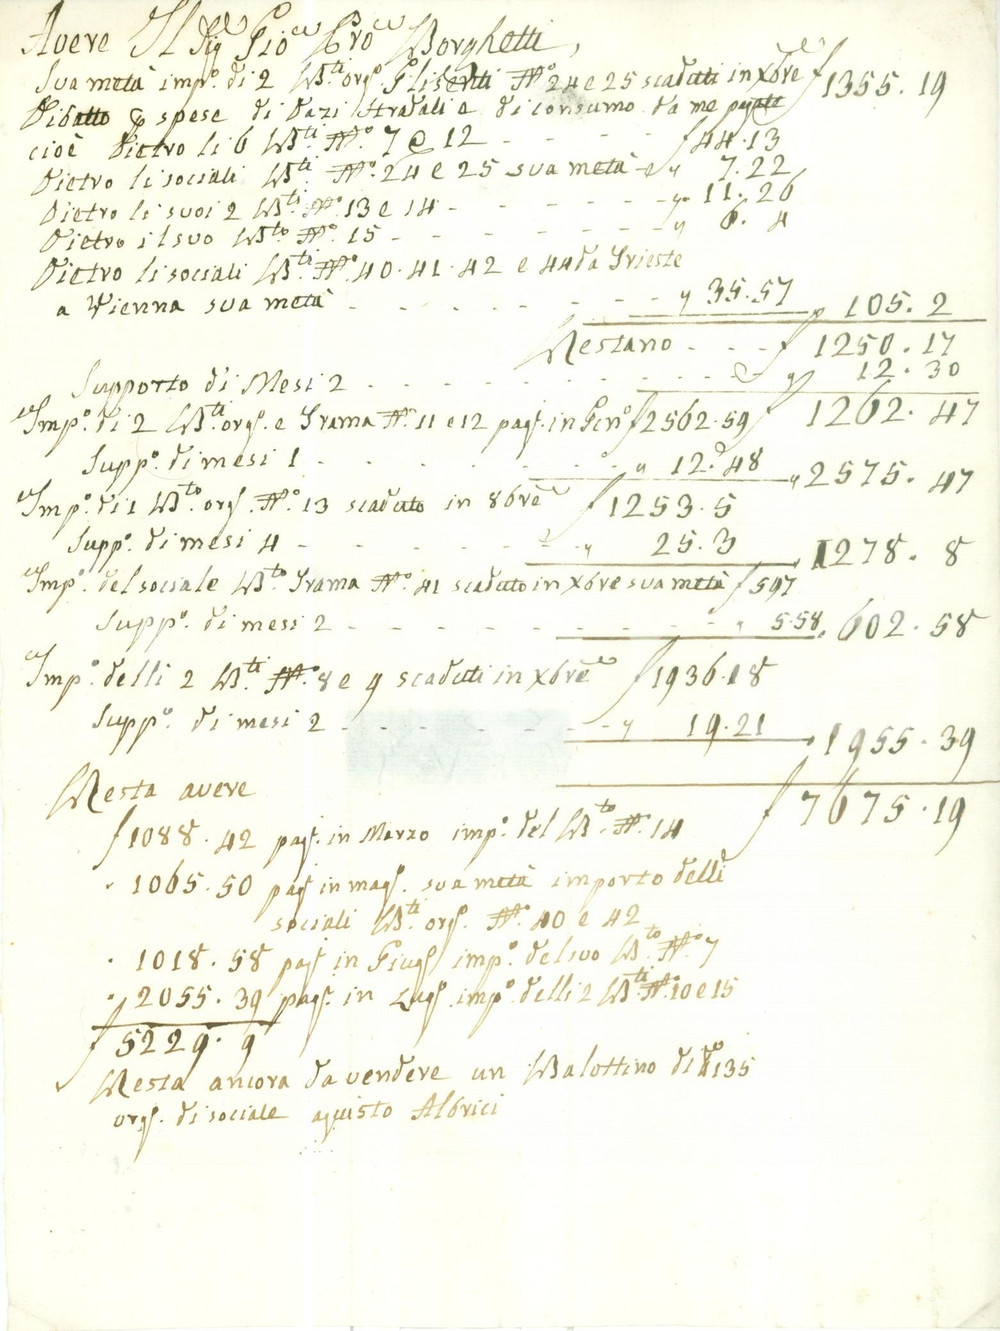 Avere Il Sig Gio Pro Borghetti,
Sua metà imp.o di 2 B.ti org.i Glisenti N.o 24 e 25 scaduti in Xbre f 1355.19
Dibatto p spese di Dazi stradali e di consumo da me pagate
cioè Dietro li 6 B.ti N.o 7 @ 12 - - - - - f 44.13
Dietro li sociali B.ti N.o 24 e 25 sua metà - " 7.22
Dietro li suoi 2 B.ti N.o 13 e 14 - - - - - - " 11.26
Dietro il suo B.to N.o 15 - - - - - - - " 6. 4
Dietro li sociali B.ti N.o 40. 41. 42 e 44 da Trieste
a Vienna sua metà - - - - - - - " 35.57 " 105. 2
Restano - - - f 1250.17
Supporto di Mesi 2 - - - - - - - - " 12.30
Imp.o di 2 B.ti org.i e Trama N.o 11 e 12 pag.i in Gen.o f 2562.59 f 1262.47
Supp.o di mesi 1 - - - - - - " 12.48 " 2575.47
Imp.o di 1 B.to org.o N.o 13 scaduto in 8bre f 1253.5
Supp.o di mesi 4 - - - - - - " 25.3 1278. 8
Imp.o del sociale B.to Trama N.o 41 scaduto in Xbre sua metà f 597
Supp.o di mesi 2 - - - - - - - - " 5.58 " 602.58
Imp.o delli 2 B.ti N.o 8 e 9 scaduti in Xbre f 1936.18
Supp.o di mesi 2 - - - - - - - " 19.21 1955.39
Resta avere f 7675.19
f 1088.42 pag.i in Marzo imp.o del B.to N.o 14
" 1065.50 pag.i in mag.o sua metà importo delli
sociali B.ti org.i N.o 40 e 42
" 1018.58 pag.i in Giug.o imp.o del suo B.to N.o 7
" 2055.39 pag.i in Lug.o imp.o delli 2 B.ti N.o 10 e 15
f 5229. 9
Resta ancora da vendere un Balottino di 135
org.o di sociale aquisto Albrici